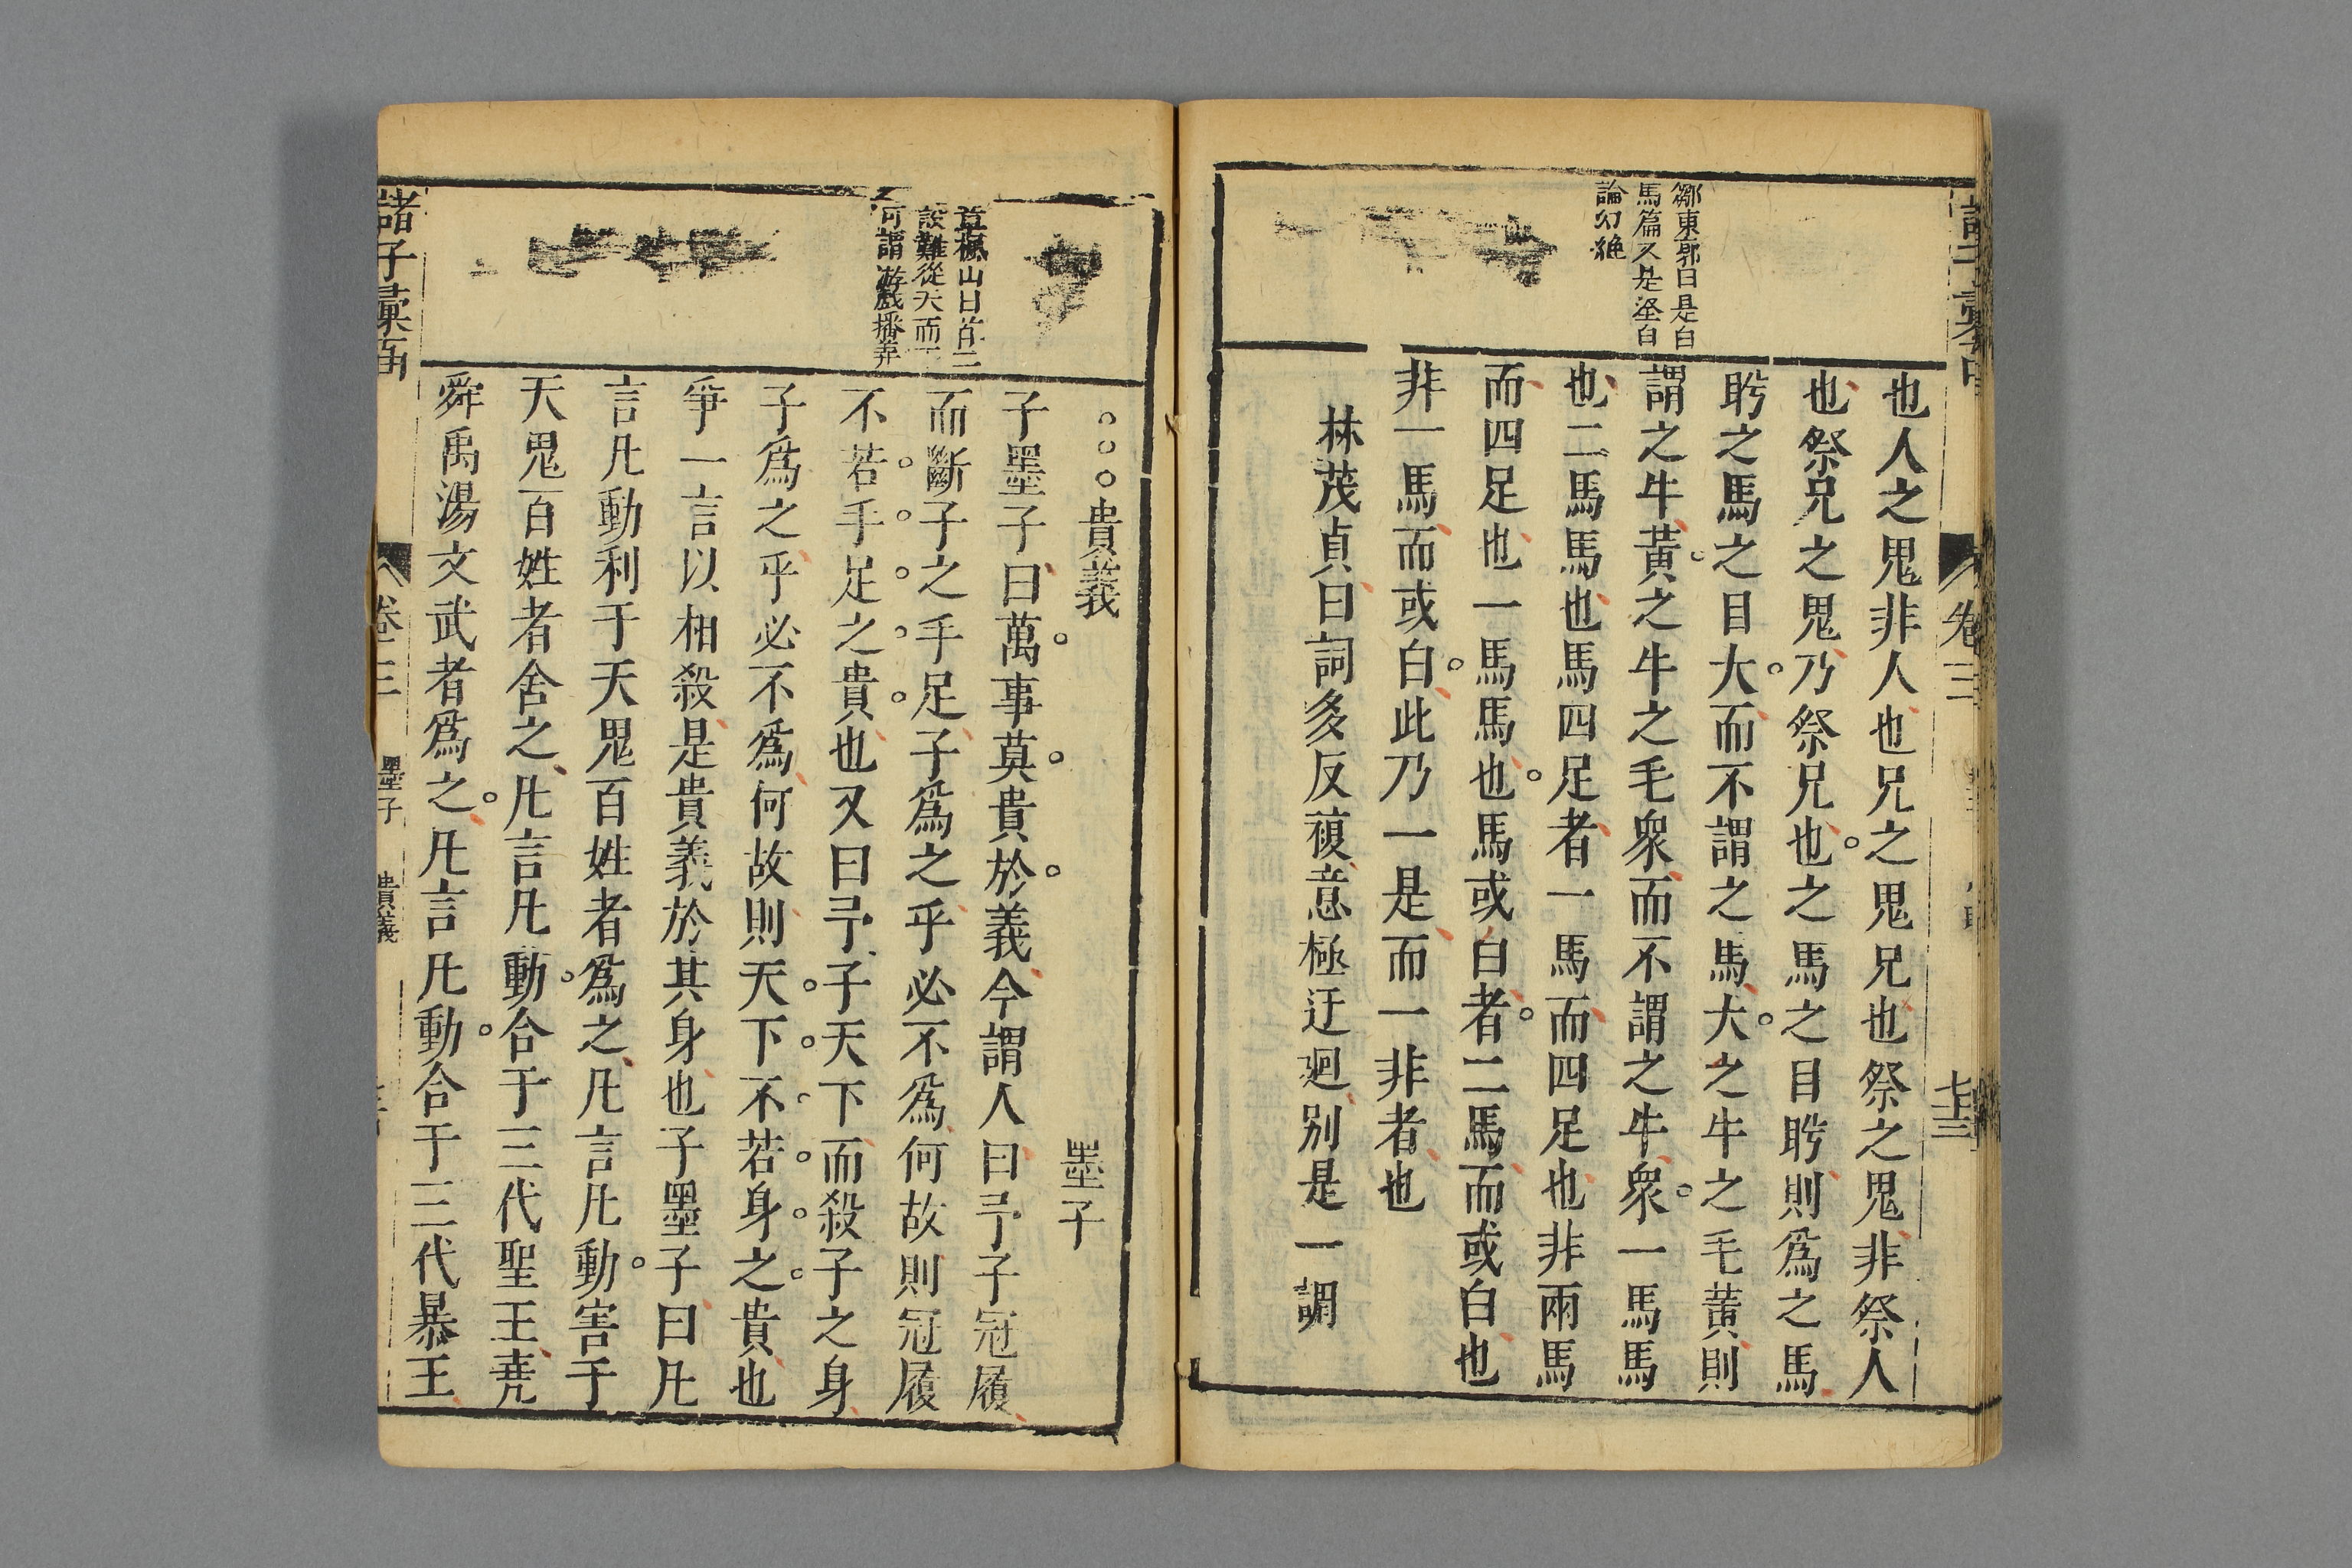 鄒東郭曰是白
馬篇又是坐白
論幻絶
也人之鬼非人也兄之鬼兄也祭之鬼非祭人
也祭兄之鬼乃祭兄也之馬之目盻則爲之馬
盻之馬之目大而不謂之馬大之牛之毛黄則
謂之牛黄之牛之毛衆而不謂之牛衆一馬馬
也二馬馬也馬四足者一馬而四足也非兩馬
而四足也一馬馬也馬或白者二馬而或白也
非一馬而或白此乃一是而一非者也
林茂貞曰詞多反覆意極迂廻别是一調
卷三
七十三
山曰首二
設難從天而下
何謂遊戯播弄
貴義
墨子
子墨子曰萬事莫貴於義今謂人曰予子冠履
而斷子之手足子爲之乎必不爲何故則冠履
不若手足之貴也又曰予子天下而殺子之身
子爲之乎必不爲何故則天下不若身之貴也
爭一言以相殺是貴義於其身也子墨子曰凡
言凡動利于天鬼百姓者爲之凡言凡動害于
天鬼百姓者舍之凡言凡動合于三代聖王堯
舜禹湯文武者爲之凡言凡動合于三代暴王
諸子彙函
卷三
墨子
貴義